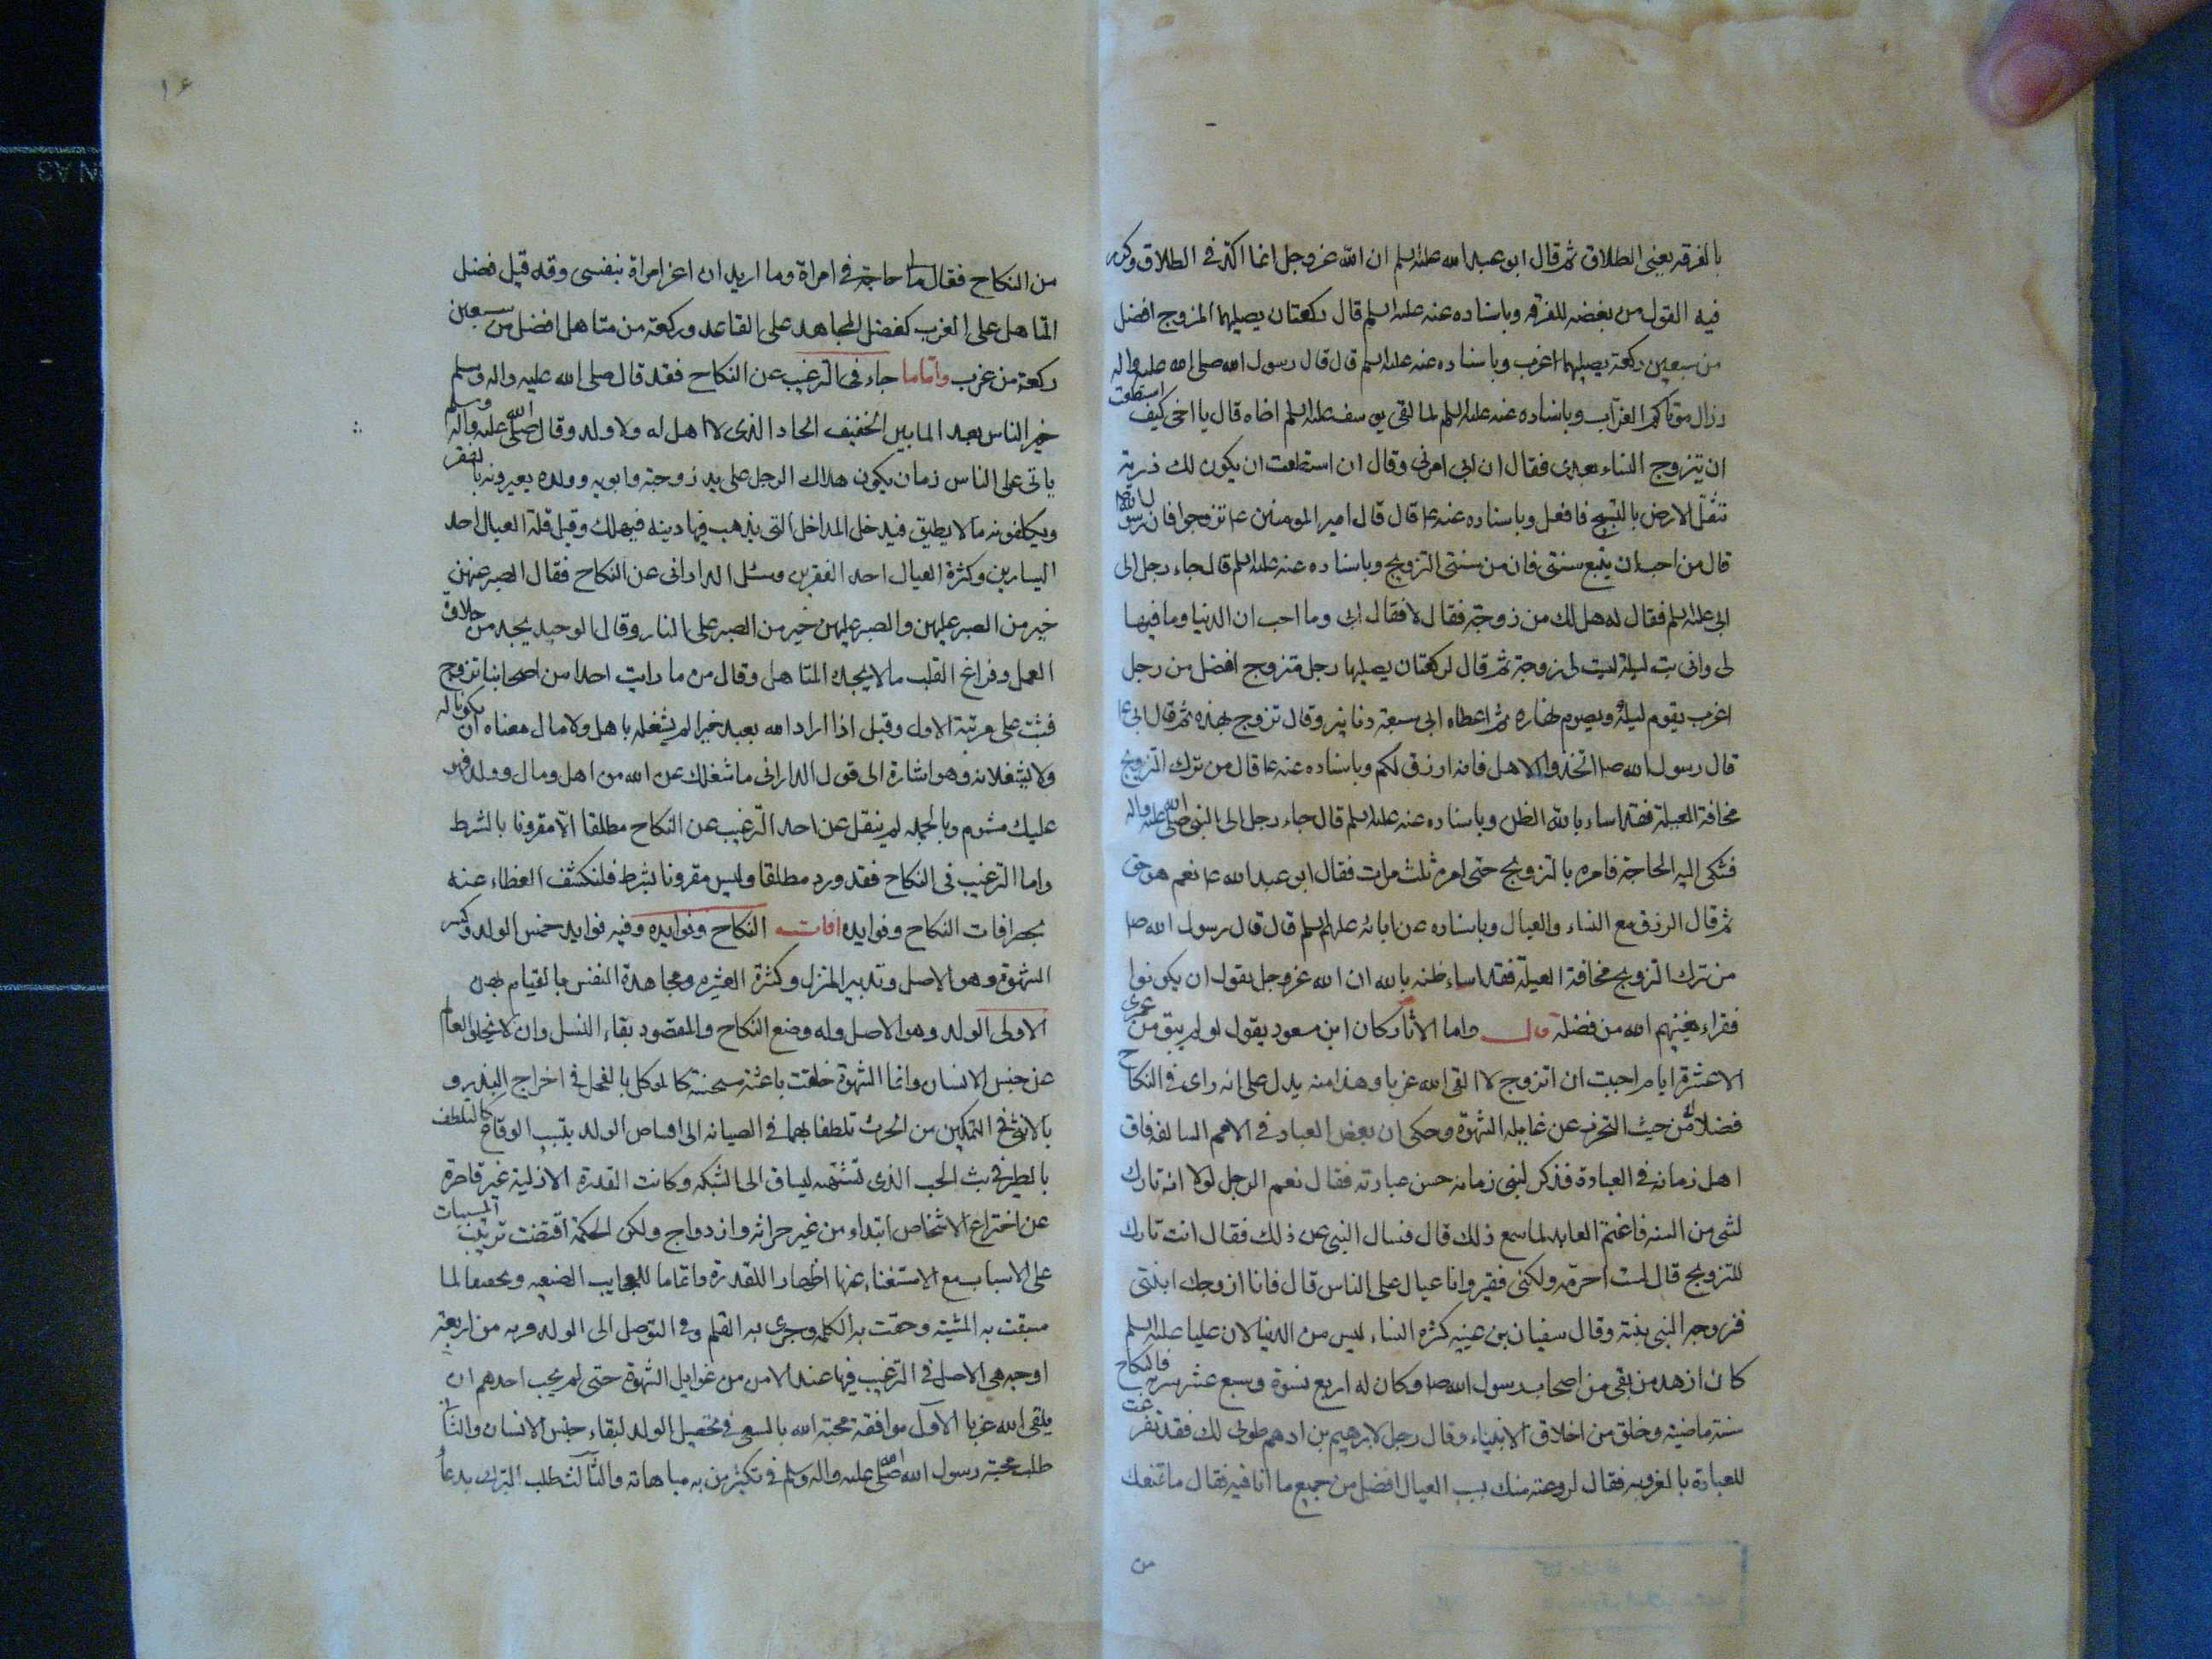 بالفرقه يعنى الطلاق ثم قال ابو عبد الله عليه السلم ان الله عز وجل انما اكد فى الطلاق وكرر
فيه القول من بغضه للفرقه وباسناده عنه عليه السلم قال ركعتان يصليهما المزوج افضل
من سبعين ركعة يصليها اعزب وباسناده عنه عليه السلم قال قال رسول الله صلى الله عليه واله
رذال موتاكم العزاب وباسناده عنه عليه السلم لما لقى يوسف عليه السلم اخاه قال يا اخى كيف استطعت
ان تتزوج النساء بعدى فقال ان ابى امرنى وقال ان استطعت ان يكون لك ذرية
تثقل الارض بالتسبيح فافعل وباسناده عنه ع قال قال امير المومنين ع تزوجوا فان رسول الله ص
قال من احب ان يتبع سنتى فان من سنتى التزويج وباسناده عنه عليه السلم قال جاء رجل الى
ابى عليه السلم فقال له هل لك من زوجة فقال لا فقال ابى وما احب ان الدنيا وما فيها
لى وانى بت ليلة ليست لى زوجة ثم قال لركعتان يصليها رجل متزوج افضل من رجل
اعزب يقوم ليله ويصوم نهاره ثم اعطاه ابى سبعة دنانير وقال تزوج بهذه ثم قال ابى ع
قال رسول الله ص اتخذوا الاهل فانه ارزق لكم وباسناده عنه ع قال من ترك التزويج
مخافة العيلة فقد اساء بالله الظن وباسناده عنه عليه السلم قال جاء رجل الى النبى صلى الله عليه واله
فشكى اليه الحاجة فامره بالتزويج حتى امره ثلث مرات فقال ابو عبد الله ع نعم هو حق
ثم قال الرزق مع النساء والعيال وباسناده عن ابائه عليهم السلم قال قال رسول الله ص
من ترك التزويج مخافة العيلة فقد اساء ظنه بالله ان الله عز وجل يقول ان يكونوا
فقراء يغنيهم الله من فضله قال واما الاثار وكان ابن مسعود يقول لو لم يبق من عمرى
الا عشرة ايام احببت ان اتزوج لا القى الله عزبا وهذا منه يدل على انه راى فى النكاح
فضلا لا من حيث التحرز عن غايله الشهوة وحكى ان بعض العباد فى الامم السالفه فاق
اهل زمانه فى العبادة فذكر لنبى زمانه حسن عبادته فقال نعم الرجل لولا انه تارك
لشى من السنه فاغتم العابد لما سمع ذلك قال فسال النبى عن ذلك فقال انت تارك
للتزويج قال لست احرمه ولكنى فقير وانا عيال على الناس قال فانا ازوجك ابنتى
فزوجه النبى بنته وقال سفيان بن عيينه كثره النساء ليس من الدنيا لان عليا عليه السلم
كان ازهد من بقى من اصحاب رسول الله ص وكان له اربع نسوة وسبع عشر سرية فالنكاح
سنة ماضية وخلق من اخلاق الانبياء وقال رجل لابرهيم بن ادهم طوبى لك فقد تفرغت
للعبادة بالعزوبه فقال لروعته منك بسبب العيال افضل من جميع ما انا فيه فقال ما تمنعك
من
١۶
من النكاح فقال ما لى حاجة فى امراة وما اريد ان اغر امراة بنفسى وقد قيل فضل
المتاهل على العزب كفضل المجاهد على القاعد وركعة من متاهل افضل من سبعين
ركعة من عزب واما ما جاء فى الترغيب عن النكاح فقد قال صلى الله عليه واله وسلم
خير الناس بعد المابين الخفيف الحاد الذى لا اهل له ولا ولد وقال صلى الله عليه واله وسلم
ياتى على الناس زمان يكون هلاك الرجل على يد زوجته وابويه وولده يعيرونه بالفقر
ويكلفونه ما لا يطيق فيدخل المداخل التى يذهب فيها دينه فيهلك وقيل قلة العيال احد
اليسارين وكثرة العيال احد الفقرين وسئل الدارانى عن النكاح فقال الصبر عنهن
خير من الصبر عليهن والصبر عليهن خير من الصبر على النار وقال الوحيد يجد من حلاوة
العمل وفراغ القلب ما لا يجده المتاهل وقال من ما رايت احدا من اصحابنا تزوج
فثبت على مرتبة الاول وقيل اذا اراد الله بعبد خيرا لم يشغله باهل ولا مال معناه ان يكونا له
ولا يشغلانه وهو اشارة الى قول الدارانى ما شغلك عن الله من اهل ومال وولد فهو
عليك مشوم وبالجمله لم ينقل عن احد الترغيب عن النكاح مطلقا الا مقرونا بالشرط
واما الترغيب فى النكاح فقد ورد مطلقا وليس مقرونا بشرط فلنكشف الغطاء عنه
بحصر افات النكاح وفوايده افات النكاح وفوايده وفيه فوايد خمس الولد وكسر
الشهوة وهو الاصل وتدبير المنزل وكثرة العشيره ومجاهدة النفس بالقيام بهن
الاولى الولد وهو الاصل وله وضع النكاح والمقصود بقاء النسل وان لا يخلو العالم
عن جنس الانسان وانما الشهوة خلقت باعثة مستحثة كالموكل بالفحل فى اخراج البذر و
بالانثى فى التمكين من الحرث تلطفا بهما فى الصيانه الى اقتناص الولد بسبب الوقاع كالتلطف
بالطير فى بث الحب الذى تشتهيه ليساق الى الشبكه وكانت القدرة الازلية غير قاصرة
عن اختراع الاشخاص ابتداء من غير حراثه وازدواج ولكن الحكمة اقتضت ترتيب المسببات
على الاسباب مع الاستغناء عنها اظهارا للقدرة واتماما للعجايب الصنعيه وتحقيقا لما
سبقت به المشية وحقت به الكلمه وجرى به القلم وفى التوصل الى الولد قربه من اربعة
اوجه هى الاصل فى الترغيب فيها عند الامن من غوايل الشهوة حتى لم يحب احدهم ان
يلقى الله عزبا الاول موافقة محبة الله بالسعى فى تحصيل الولد لبقاء جنس الانسان والثانى
طلب محبة رسول الله صلى الله عليه واله وسلم فى تكثير من به مباهاته والثالث طلب التبرك بدعاء